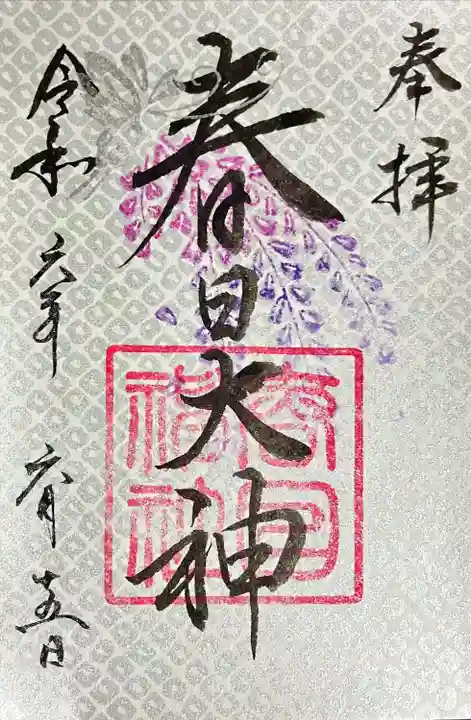 奉拝
春日大神
令和六年六月十五日